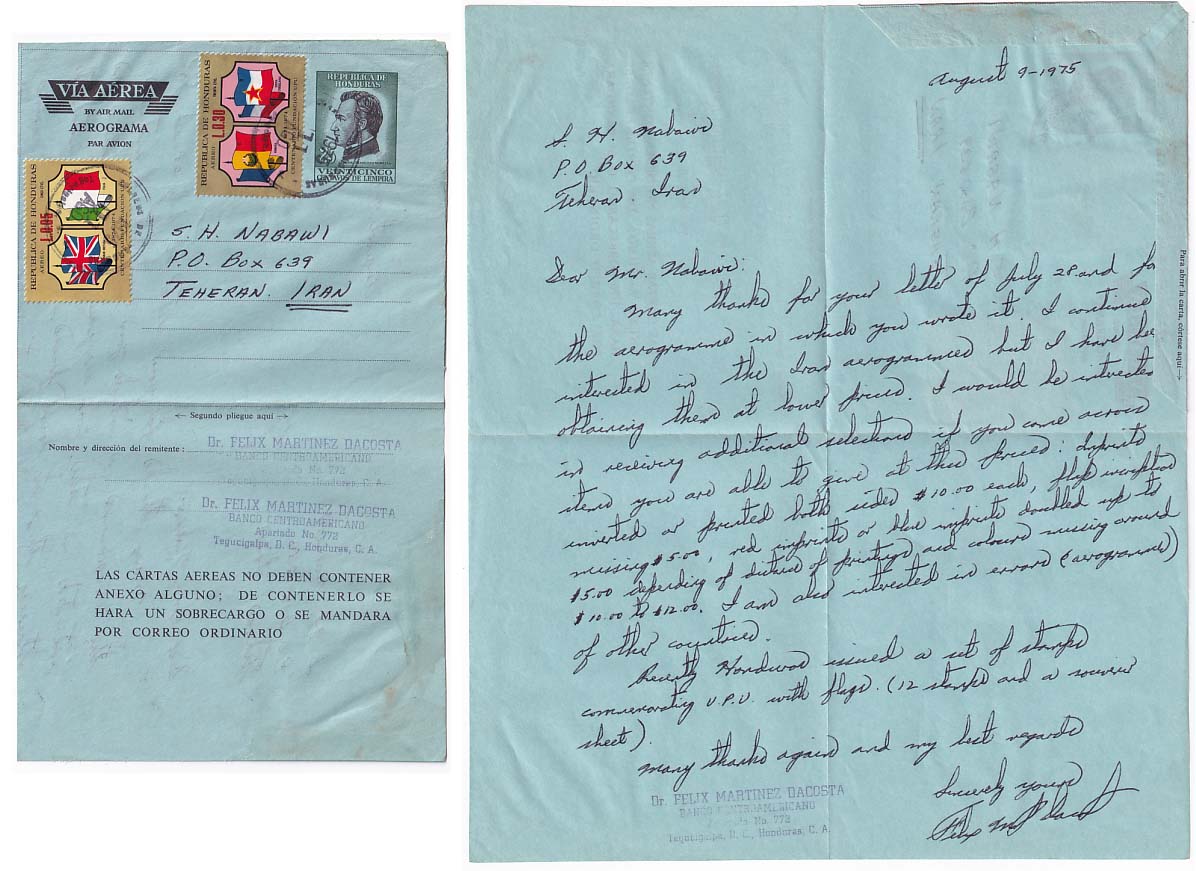 VÍA AÉREA
BY AIR MAIL
AEROGRAMA
PAR AVION
REPUBLICA DE HONDURAS
L.0.30
REPUBLICA DE
HONDURAS
VEINTICINCO
CENTAVOS DE LEMPIRA
REPUBLICA DE HONDURAS
L.0.05
S. H. NABAWI
P.O. BOX 639
TEHERAN. IRAN
← Segundo pliegue aquí →
Nombre y dirección del remitente :
Dr. FELIX MARTINEZ DACOSTA
BANCO CENTROAMERICANO
No. 772
Tegucigalpa, D. C., Honduras, C. A.
Dr. FELIX MARTINEZ DACOSTA
BANCO CENTROAMERICANO
Apartado No. 772
Tegucigalpa, D. C., Honduras, C. A.
LAS CARTAS AEREAS NO DEBEN CONTENER
ANEXO ALGUNO; DE CONTENERLO SE
HARA UN SOBRECARGO O SE MANDARA
POR CORREO ORDINARIO
August 9-1975
S. H. Nabawi
P.O. Box 639
Teheran. Iran
Dear Mr. Nabawi:
Many thanks for your letter of July 28 and for
the aerogramme in which you wrote it. I continue
interested in the Iran aerogrammes but I have be
obtaining them at lower prices. I would be interested
in receiving additional selections if you come across
items you are able to give at these prices: imprints
inverted or printed both sides $10.00 each, flap inscription
missing $5.00, red imprints or blue imprints doubled up to
$5.00 depending of of printings and colours missing around
$10.00 to $12.00. I am also interested in errors (aerogrammes)
of other countries.
Recently Honduras issued a set of stamps
commemorating U.P.U. with flags. (12 stamps and a souvenir
sheet).
Many thanks again and my best regards
Sincerely yours
Dr. FELIX MARTINEZ DACOSTA
BANCO CENTROAMERICANO
No. 772
Tegucigalpa, D. C., Honduras, C. A.
Para abrir la carta, córtese aquí →